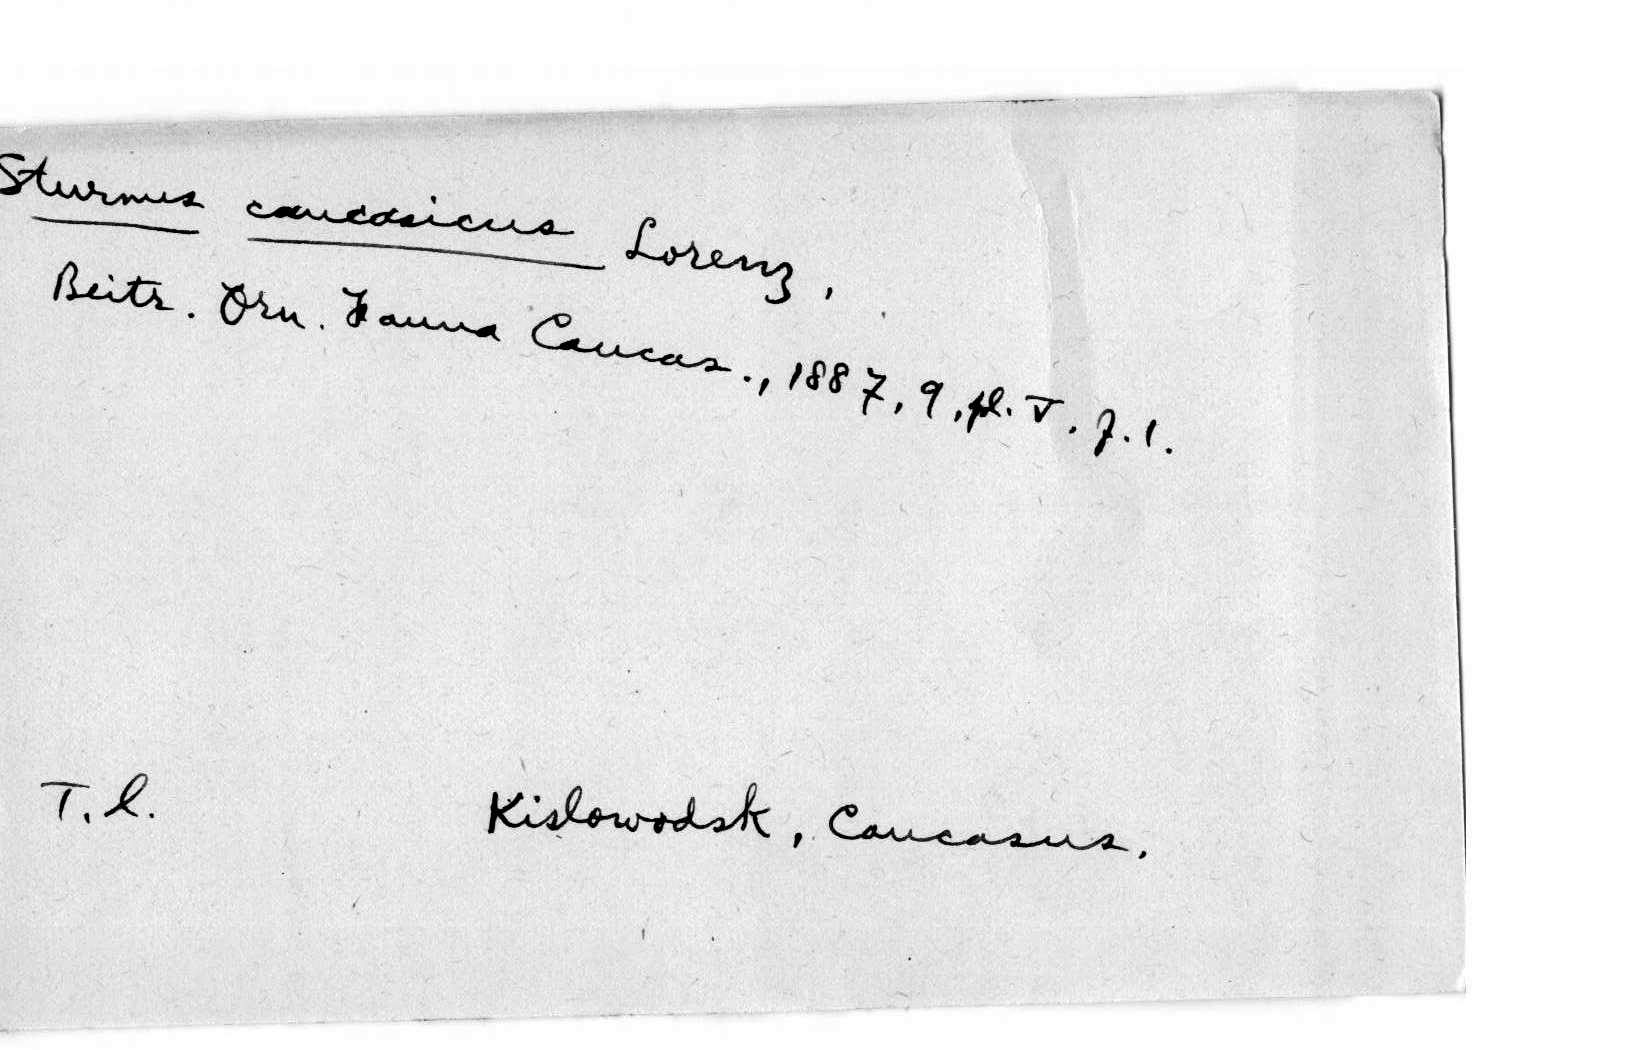 Sturnus caucasicus Lorenz,
Beitr. Orn. Fauna Caucas., 1887, 9, pl. V. f. 1.
T. l. Kislowodsk, Caucasus.